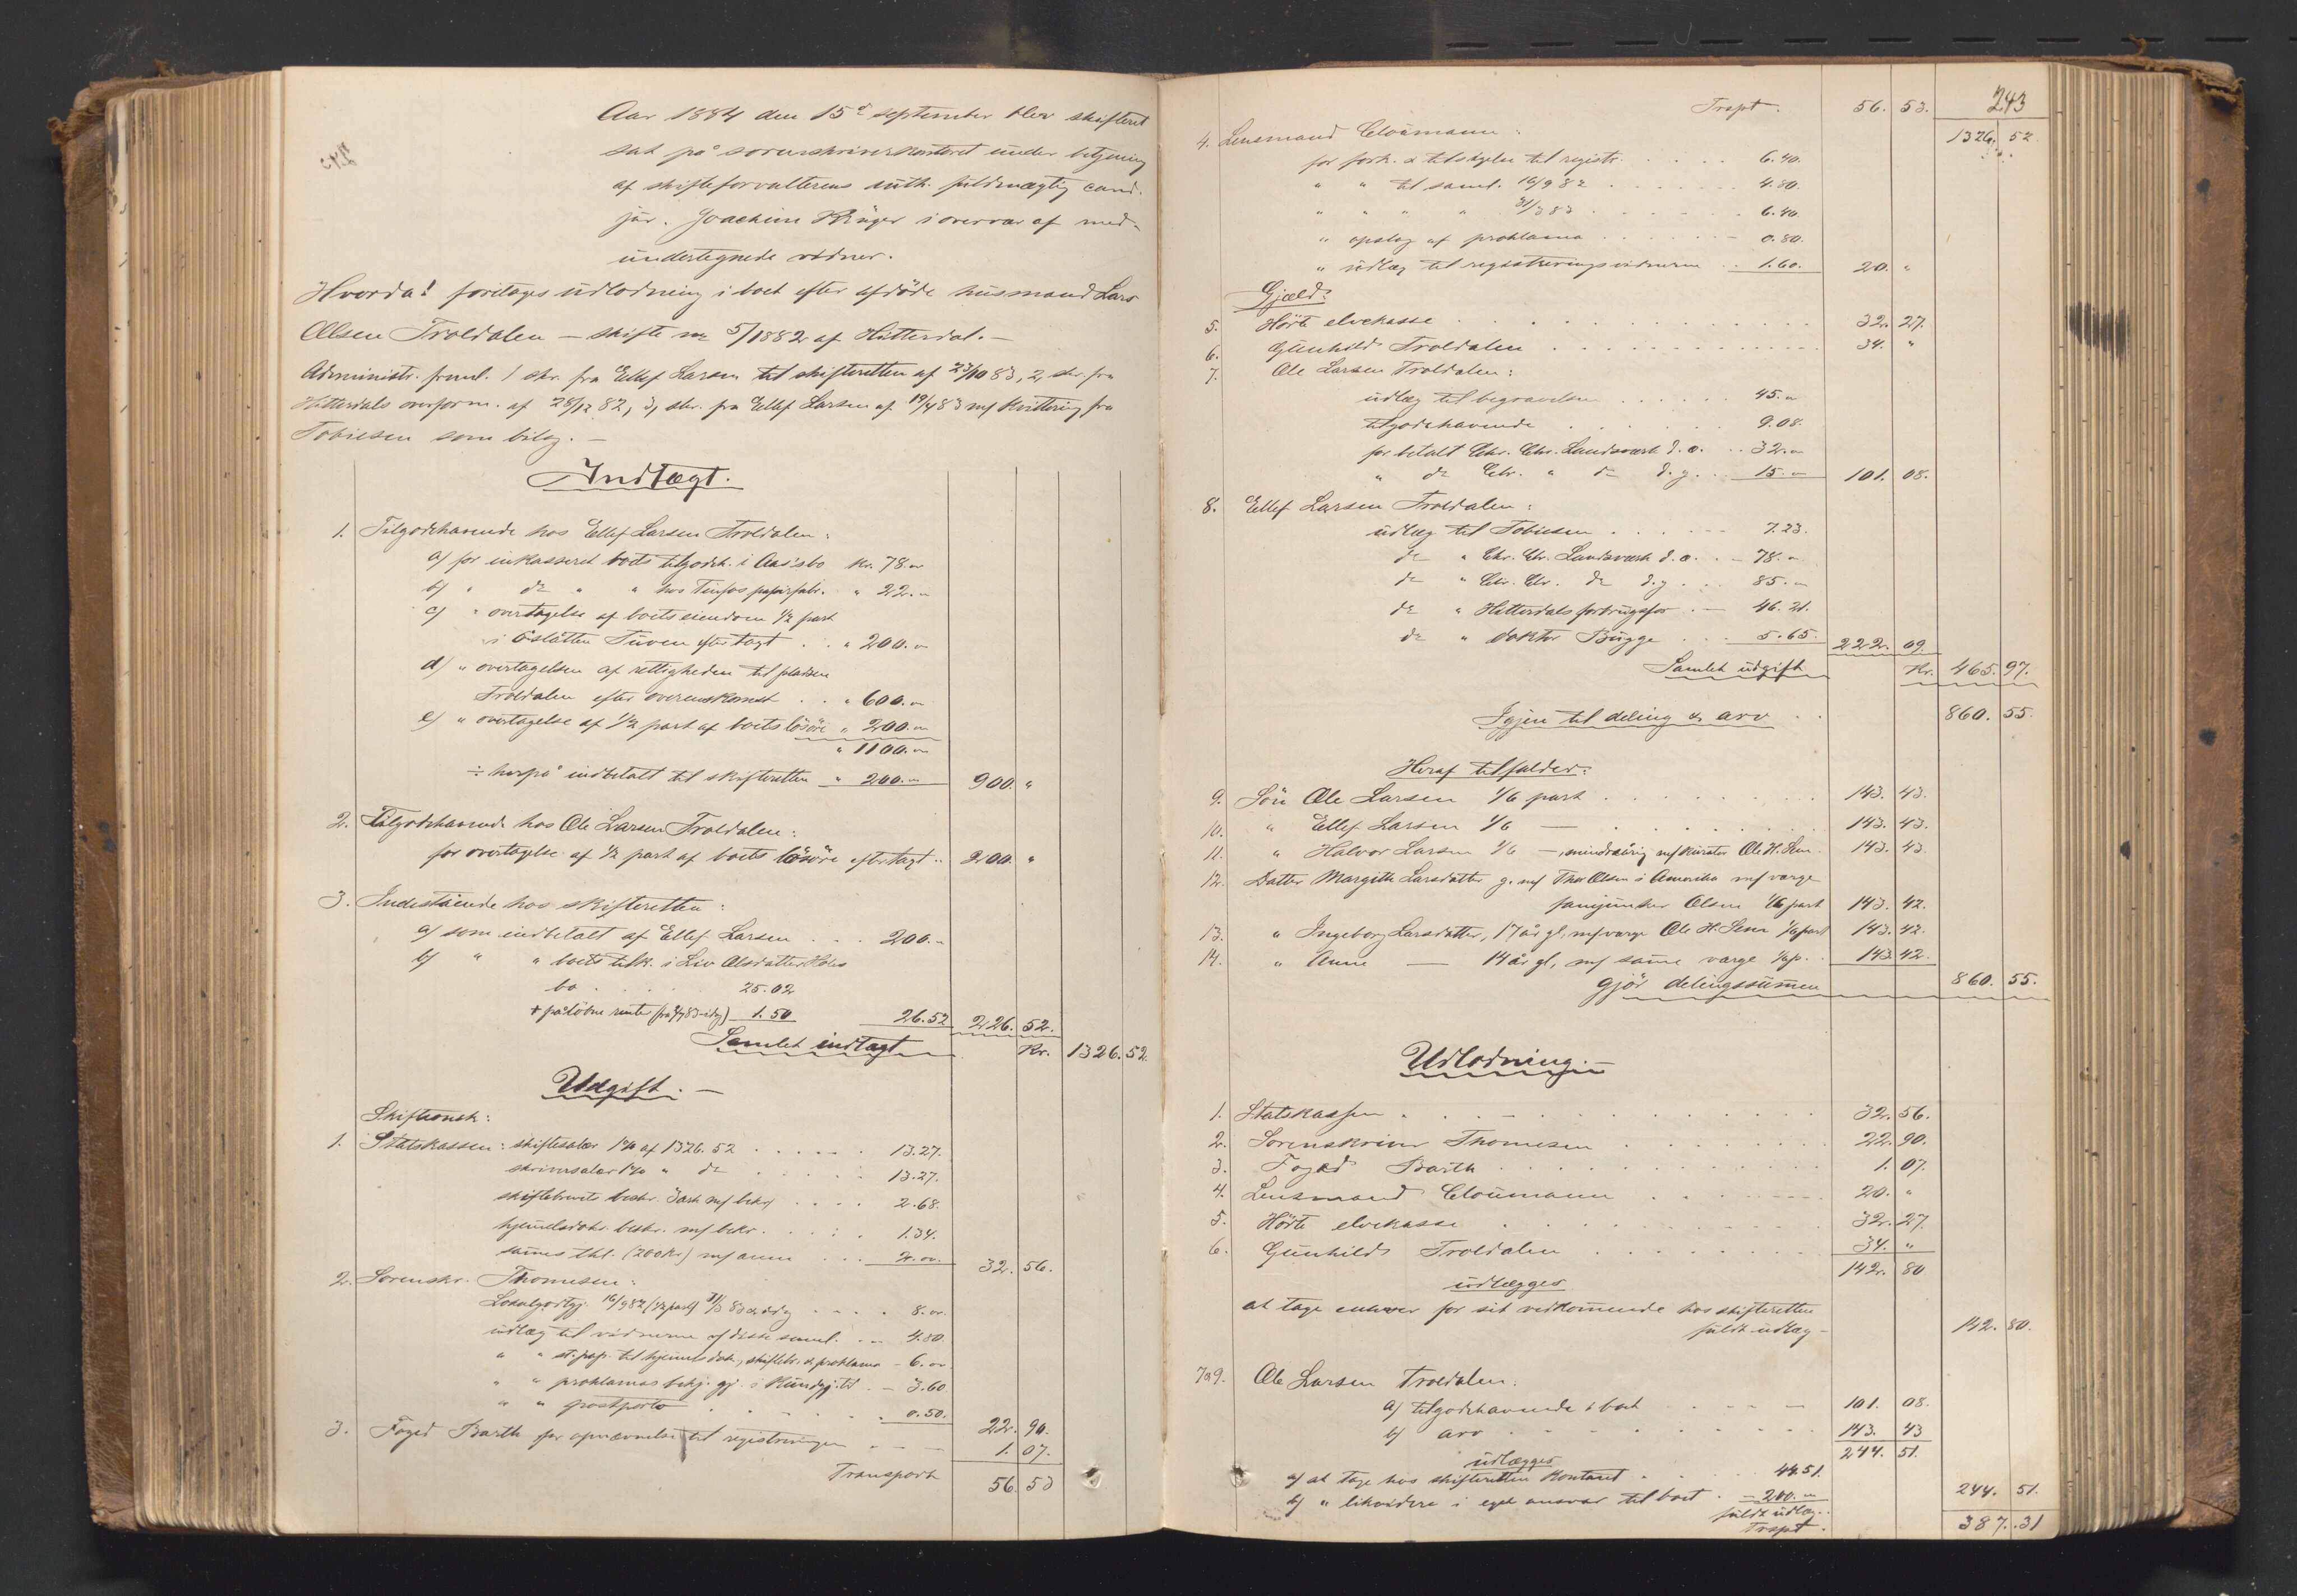 Aar 1884 den 15d september blev skifteret
sat på sorenskriverkontoret under betjening
af skifteforvalterens auth. fuldmægtig cand.
jur. Joachim Krüger i overvær af med-
undertegnede vidner.
Hvorda! foretages udlodning i boet efter afdöde husmand Lars
Olsen Troldalen — skifte no 5/1882 af Hitterdal. —
Administr. freml. 1 skr. fra Ellef Larsen til skifteretten af 23/10 83, 2, skr. fra
Hitterdals overform. af 28/12 82, 3, skr. fra Ellef Larsen af 19/4 83 m/ kvittering fra
Tobiesen som bilag. —
Indtægt.
1. Tilgodehavende hos Ellef Larsen Troldalen:
a) for inkasseret boets tilgodeh. i Aas's bo Kr. 78.„
b) „ do „ „ hos Tinfos papirfabr. „ 22.„
c) „ overtagelse af boets eiendom 1/2 part
i Öslåtten Tuven efter taxt . . „ 200.„
d) „ overtagelsen af rettigheden til pladsen
Troldalen efter overenskomst . . „ 600.„
e) „ overtagelse af 1/2 part af boets lösöre „ 200.„
„ 1100.„
÷ herpå indbetalt til skifteretten „ 200.„ 900. „
2. Tilgodehavende hos Ole Larsen Troldalen:
for overtagelse af 1/2 part af boets lösöre efter taxt . . 200. „
3. Indestående hos skifteretten:
a) som indbetalt af Ellef Larsen . . . 200.„
b) „ „ boets tilk. i Liv Olsdatter
bo . . . . . 25.02
+ påløbne renter 1.50 26.52 226. 52.
Samlet indtægt Kr. 1326. 52.
Udgift. —
Skifteomk:
1. Statskassen: skiftesalær 1% af 1326.52 . . . . . 13.27.
skriversalær 1% „ do . . . . . 13.27.
skiftebrevets beskr. 3 ark m/ bekr. . . . . 2.68.
hjemelsdok. beskr. m/ bekr. . . . . 1.34.
sammes thl. (200 kr.) m/ anm . . . 2.„ 32. 56.
2. Sorenskr. Thomesen:
Lokalgodtgj. 16/9 82 (1/2 part) 31/3 83 & idag . . . . 8.„
udlæg til vidnerne af disse saml. . — 4.80.
„ „ st. pap. til hjemelsdok., skiftebr. & proklama - 6.„
„ „ proklamas bekj. gj. i Kundgj.td. - 3.60
„ „ postporto . . . . . . . 0.50. 22. 90.
3. Foged Barth for opnævnelse til registreringen . — — 1. 07.
Transport 56. 53
243
Trspt. 56. 53. 1326. 52
4. Lensmand Cloumann:
for forh. & tilsigelse til registr. . . . . . 6.40.
„ „ til saml. 16/9 82 . . . . . . . 4.80.
„ „ „ „ 31/3 83 . . . . . . . 6.40.
„ opslag af proklama . . . . . . 0.80.
„ udlæg til registreringsvidnerne . . 1.60. 20. „
Gjæld:
5. Hörte elvekasse . . . . . . . . . . . 32. 27.
6. Gunhild Troldalen . . . . . . . . . . 34. „
7. Ole Larsen Troldalen:
udlæg til begravelsen . . . . . . 45.„
tilgodehavende . . . . . . 9.08.
for betalt Chr. Chr. Landsværk d. æ. . . 32.„
„ do Chr. „ do d. y. . . 15.„ 101. 08.
8. Ellef Larsen Troldalen:
udlæg til Tobiesen . . . . . . 7.23.
do „ Chr. Chr. Landsværk d. æ. . — 78.„
do „ Chr. Chr. do d. y. . . . 85.„
do „ Hitterdals forbrugsfor . — 46.21.
do „ doktor Bugge . . . 5.65. 222. 09
Samlet udgift Kr. 465. 97.
Igjen til deling & arv . . 860. 55.
Heraf tilfalder:
9. Sön Ole Larsen 1/6 part . . . . . . . 143. 43.
10. „ Ellef Larsen 1/6 — . . . . . . 143. 43.
11. „ Halvor Larsen 1/6 —, mindreårig m/ kurator Ole H. Sem . 143. 43
12. Datter Margithe Larsdatter g. m/ Thor Olsen i Amerika m/ værge
Olsen 1/6 part 143. 42.
13. „ Ingeborg Larsdatter, 17 år gl., m/ værge Ole H. Sem 1/6 part 143. 42.
14. „ Anne — 14 år gl., m/ samme værge 1/6 p. . 143. 42.
gjör delingssummen 860. 55.
Udlodning. —
1. Statskassen . . . . . . . . . . . 32. 56.
2. Sorenskriver Thomesen . . . . . . . 22. 90.
3. Foged Barth . . . . . . . . . . 1. 07.
4. Lensmand Cloumann . . . . . . . 20. „
5. Hörte elvekasse . . . . . . . . . 32. 27.
6. Gunhild Troldalen . . . . . . . . 34. „
udlægges 142. 80
at tage enhver for sit vedkommende hos skifteretten
fuldt udlæg — 142. 80.
7 & 9. Ole Larsen Troldalen:
a) tilgodehavende i boet . . — — — 101. 08.
b) arv . . . . . . . . . . 143. 43
udlægges 244. 51.
a) at tage hos skifteretten kontant . . . . . 44.51.
b) „ likvidere i eget ansvar til boet . — 200.„ 244. 51.
fuldt udlæg.
Trspt. 387. 31